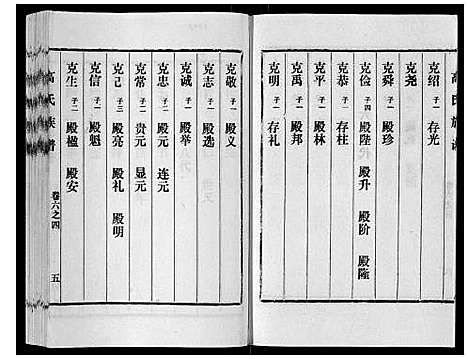 高氏族譜
克绍 子一 存光
克尧
克舜 子一 殿珍
克俭 子四 殿陞 殿升 殿阶 殿隆
克恭 子一 存柱
克平 子一 殿林
克禹 子一 殿邦
克明 子一 存礼
克敬 子一 殿义
克志 子一 殿选
克诚 子一 殿举
克忠 子二 殿元 连元
克常 子二 贵元 显元
克己 子三 殿亮 殿礼 殿明
克信 子一 殿魁
克生 子二 殿楹 殿安
高氏族谱
卷六之四
五